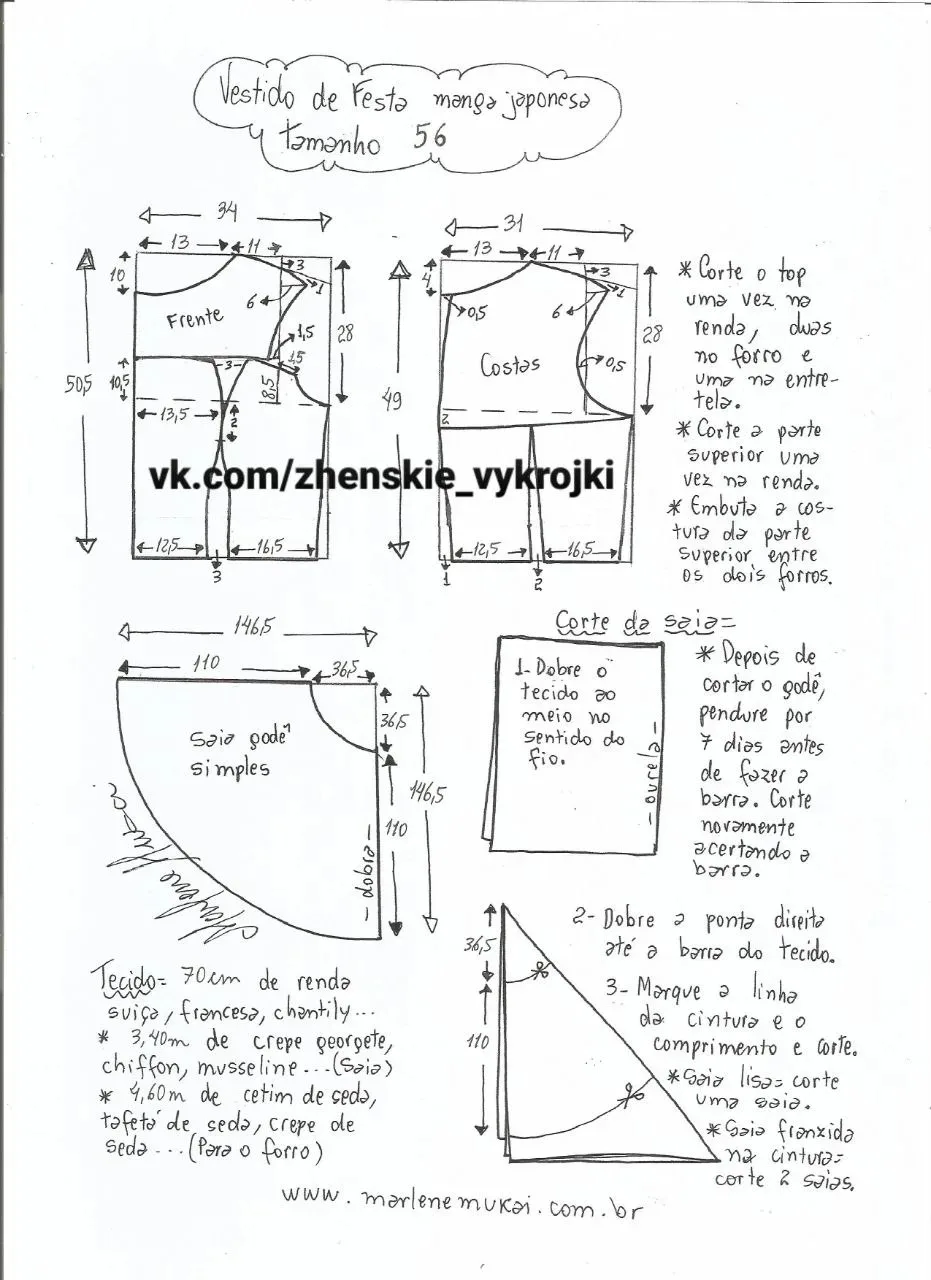 Vestido de Festa manga japonesa
tamanho 56
34
13
11
10
3
1
6
Frente
1,5
1,5
28
50,5
10,5
3
8,5
13,5
2
12,5
16,5
3
31
13
11
4
3
1
0,5
6
Costas
28
0,5
49
2
12,5
16,5
1
2
* Corte o top
uma vez na
renda, duas
no forro e
uma na entre-
tela.
* Corte a parte
superior uma
vez na renda.
* Embuta a cos-
tura da parte
superior entre
os dois forros.
vk.com/zhenskie_vykrojki
146,5
110
36,5
36,5
Saia godê
simples
146,5
110
- dobra -
Marlene Mukai
Corte da saia=
1- Dobre o
tecido ao
meio no
sentido do
fio.
- ourela -
* Depois de
cortar o godê,
pendure por
7 dias antes
de fazer a
barra. Corte
novamente
acertando a
barra.
36,5
110
2- Dobre a ponta direita
até a barra do tecido.
3- Marque a linha
da cintura e o
comprimento e corte.
* Saia lisa= corte
uma saia.
* Saia franzida
na cintura=
corte 2 saias.
Tecido= 70cm de renda
suiça, francesa, chantily...
* 3,40m de crepe georgete,
chiffon, musseline... (Saia)
* 4,60m de cetim de seda,
tafetá de seda, crepe de
seda... (Para o forro)
www.marlenemukai.com.br